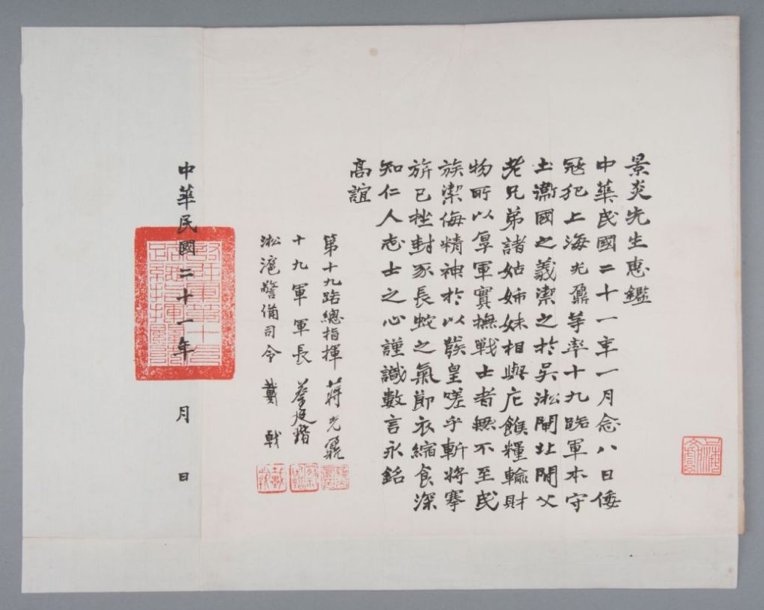 景炎先生惠鑑
中華民國二十一年一月念八日倭
寇犯上海光鼐等率十九路軍本守
土衞國之義禦之於吳淞閘北間父
老兄弟諸姑姊妹相與庀餱糧輸財
物所以厚軍實撫戰士者無不至民
族禦侮精神於以發皇嗟乎斬將搴
旂已挫封豕長蛇之氣節衣縮食深
知仁人志士之心謹識數言永銘
高誼
第十九路總指揮 蔣光鼐
十九軍軍長 蔡廷鍇
淞滬警備司令 戴戟
中華民國二十一年 月 日